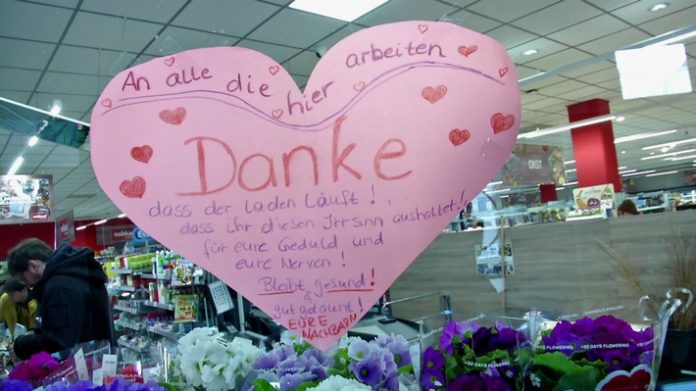 An alle die hier arbeiten
Danke
dass der Laden läuft!,
dass ihr diesen Irrsinn aushaltet!
für eure Geduld und
eure Nerven!
Bleibt gesund!
& gut gelaunt!
EURE
NACHBARN
OBST
+30 DAYS FLOWERING
+30 DAYS FLOWERING